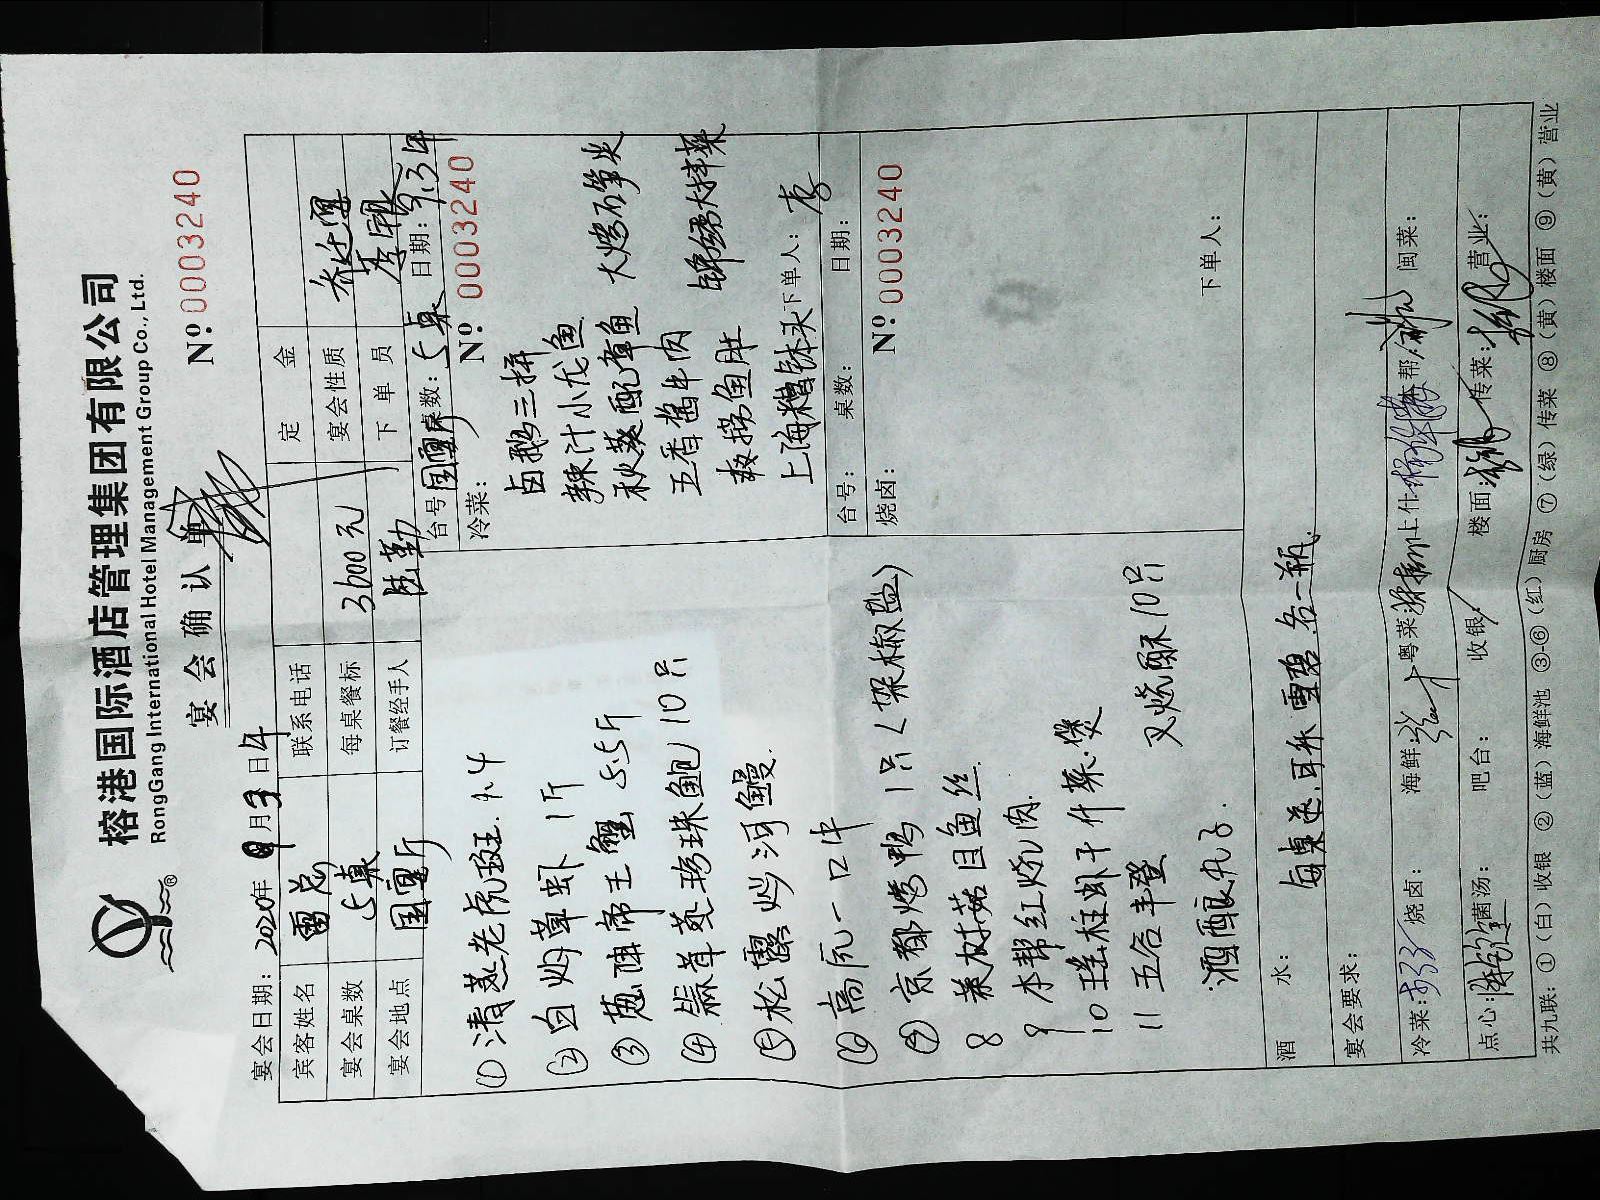 榕港国际酒店管理集团有限公司
RongGang International Hotel Management Group Co., Ltd.
宴会确认单
№ 0003240
宴会日期: 2020年 9月3日 午
宾客姓名 雷总 联系电话 定金
宴会桌数 5桌 每桌餐标 3600元 宴会性质 乔迁
宴会地点 国宴厅 订餐经手人 下单员 李
台号 国宴厅 桌数: 5桌 日期: 9.3午
冷菜: № 0003240
卤鹅三拼
辣汁小龙鱼
秋葵配章鱼 大烤石笋尖
五香酱牛肉
爽捞鱼肚 锦绣大拌菜
上海糟钵头 下单人: 李
台号: 桌数: 日期:
烧卤: № 0003240
下单人:
① 清蒸老虎斑 1.4
② 白灼草虾 1斤
③ 葱油帝王蟹 5.5斤
④ 珍珠鲍 10只
⑤ 松露炒河鳗
⑥ 高汤一口牛
⑦ 京都烤鸭 1只 (架椒盐)
8 菜椒菇目鱼丝
9 本帮红烧肉
10 瑶柱虾干什菜煲
11 五谷丰登 叉烧酥10只
酒酿丸子
酒水:
每桌送 可乐 雪碧 各一瓶
宴会要求:
冷菜: 烧卤: 海鲜: 粤菜 上什 本帮: 闽菜:
点心: 菌汤: 吧台: 收银: 楼面: 传菜: 营业:
共九联: ①(白)收银 ②(蓝)海鲜池 ③-⑥(红)厨房 ⑦(绿)传菜 ⑧(黄)楼面 ⑨(黄)营业